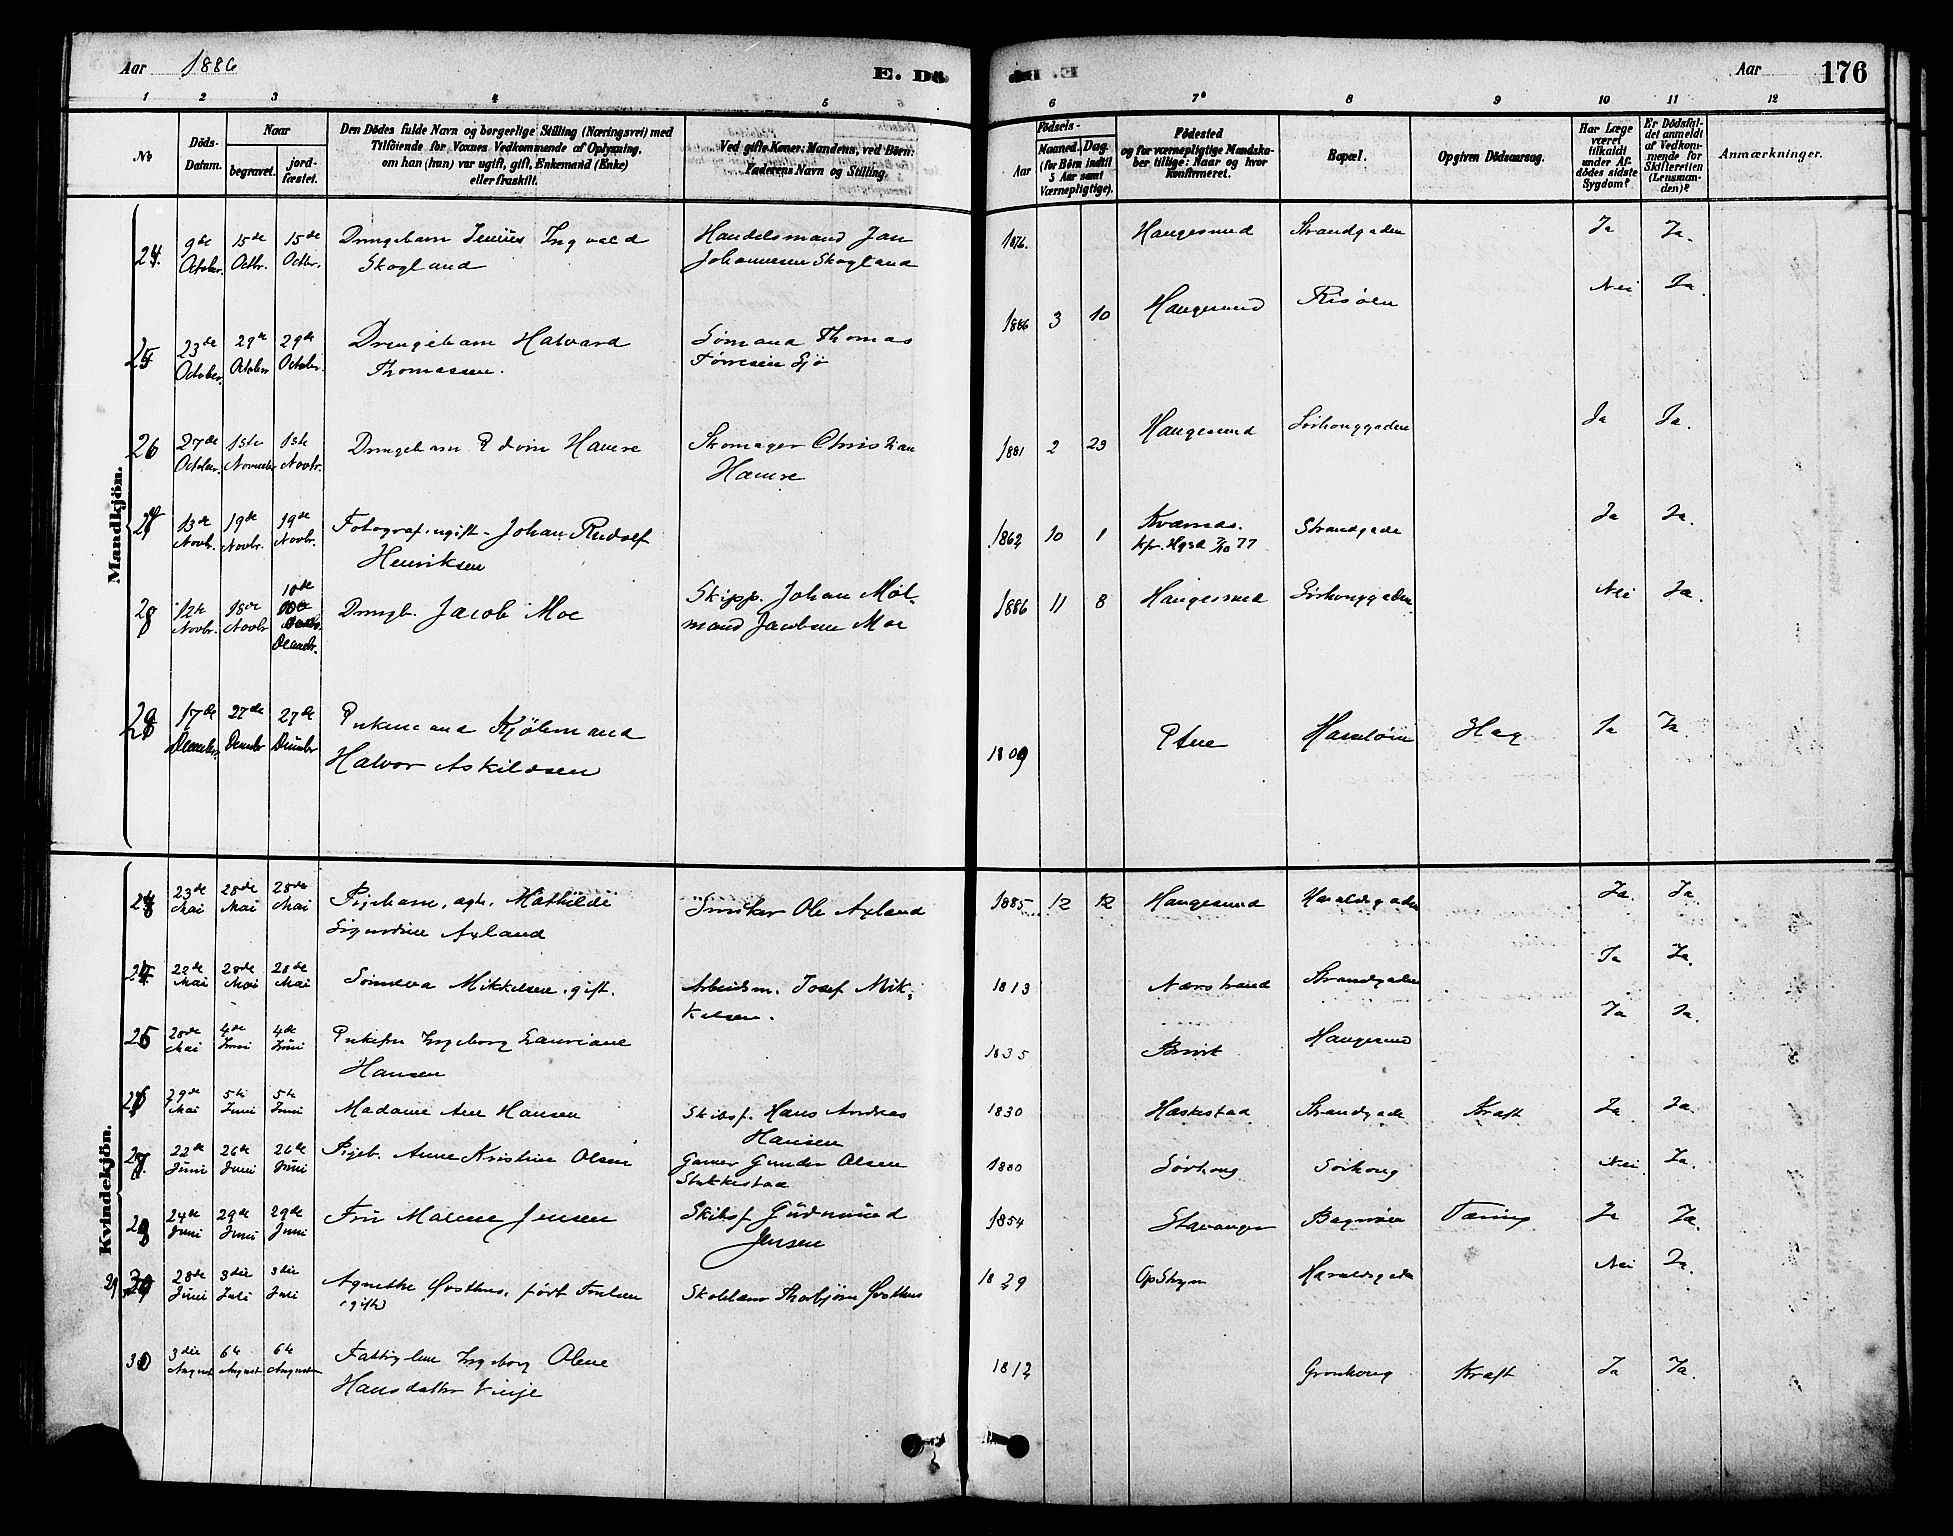 Aar 1886
E. Dö
Aar
176
1 2 3 4 5
6 7 8 9 10 11 12
No
Döds-Datum.
Naar
begravet.
jord-fæstet.
Den Dödes fulde Navn og borgerlige Stilling (Næringsvei) med
Tilföiende for Voxnes Vedkommende af Oplysning,
om han (hun) var ugift, gift, Enkemand (Enke)
eller fraskilt.
Ved gifte Koner: Mandens, ved Börn:
Faderens Navn og Stilling.
Födsels-
Aar
Maaned. Dag.
(for Börn indtil
5 Aar samt
Værnepligtige).
Födested
og for værnepligtige Mandska-
ber tillige: Naar og hvor
Konfirmeret.
Bopæl.
Opgiven Dödsaarsag.
Har Læge
været
tilkaldt
under Af-
dödes sidste
Sygdom?
Er Dödsfal-
det anmeldt
af Vedkom-
mende for
Skifteretten
(Lensman-
den)?
Anmærkninger.
Mandkjön.
24. 9de October. 15de Octbr. 15de Octbr. Drengebarn Ingvald Skogland Handelsmand Jan Johannesen Skogland 1876. Haugesund Strandgaden Ja Ja.
25 23de October. 29de October 29de October. Drengebarn Halvard Thomassen. Sømand Thomas Tørresen Sjø 1886 3 10 Haugesund Risøen Nei Ja.
26 27de October. 1ste November 1ste Novbr. Drengebarn Edvin Hamre Skomager Christian Hamre 1881 2 23 Haugesund Sørhauggaden Ja Ja.
27 13de Novbr. 19de Novbr. 19de Novbr. Fotograf, ugift - Johan Rudolf Henriksen 1862 10 1 Kværnæs. Strandgade Ja Ja.
28 12te Novbr. 18de Novbr 10de Decembr. Drengb. Jacob Moe Skipp. Johan Molmand Jacobsen Moe 1886 11 8 Haugesund Sørhauggaden Nei Ja.
29 17de December. 27de Decembr 27de Decembr Enkemand Kjøbmand Halvor Askildsen 1809 Etne Hasseløen Ja Ja.
Kvindekjön.
23 23de Mai 28de Mai 28de Mai Pigebarn, agte, Mathilde Sigurdine Axland Snikker Ole Axland 1885 12 12 Haugesund Haraldsgaden Ja. Ja.
24 22de Mai 28de Mai 28de Mai Sønneva Mikkelsen, gift. Arbeidsm. Josef Mikkelsen. 1813 Nærstrand Strandgaden Ja Ja.
25 28de Mai 4de Juni 4de Juni Enkefru Ingeborg Lauriane Hansen 1835 Haugesund Ja Ja.
26 29de Mai 5te Juni 5te Juni Madame Ane Hansen Skibsf. Hans Andreas Hansen 1830 Haskestad Strandgade Kræft Ja Ja.
27. 22de Juni 26de Juni 26de Juni Pigeb. Anne Kristine Olsen Garver Gunder Olsen Stakkestad 1880 Sørhaug Sørhaug Nei Ja.
28 24de Juni 29de Juni 29de Juni Fru Malene Jensen Skibsf. Gudmund Jensen 1854 Stavanger Bagerøen Tæring Ja Ja.
29 28de Juni 3die Juli 3die Juli Agnethe Østhus, født (gift) Skolelærer Thorbjørn Østhus 1829 Opstryn Haraldsgaden Nei Ja.
30 3die August 6te August 6te August Fattiglem Ingeborg Olene Hansdatter Vinje 1812 Kræft Ja Ja.